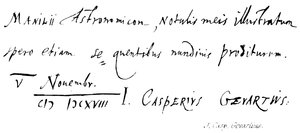 Manilii Astronomicon, notulis meis illustratum
spero etiam sequentibus nundinis proditurum.
V Novembr.
CIƆ IƆCXVIII I. Casperius Gevartius.